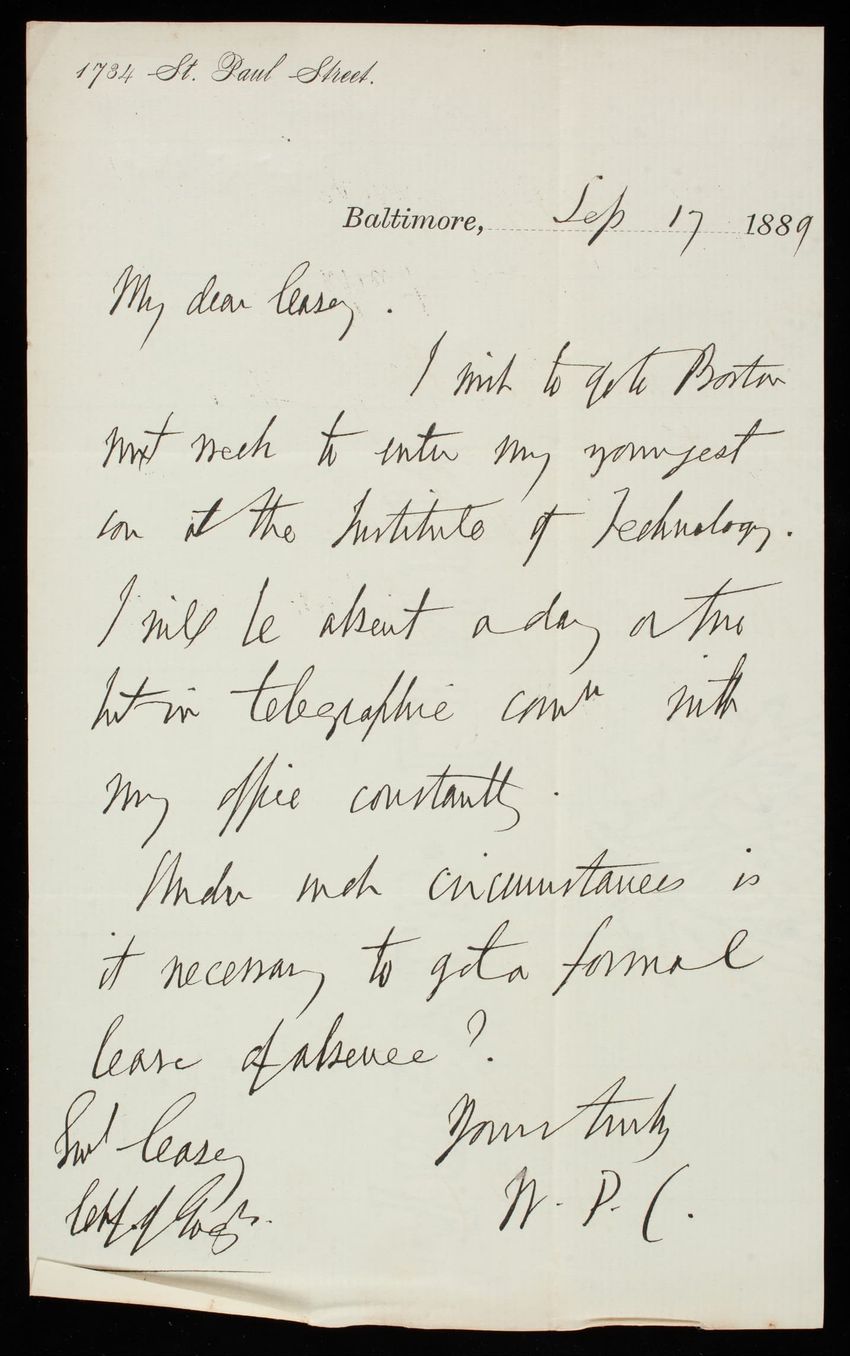 1734 St. Paul Street.
Baltimore, Sep 17 1889
My dear Casey.
I wish to go to Boston
next week to enter my youngest
son at the Institute of Technology.
I will be absent a day or two
but in telegraphic comn with
my office constantly.
Under such circumstances is
it necessary to get a formal
leave of absence?
Yours truly
W. P. C.
Genl Casey
Chf of Engrs.